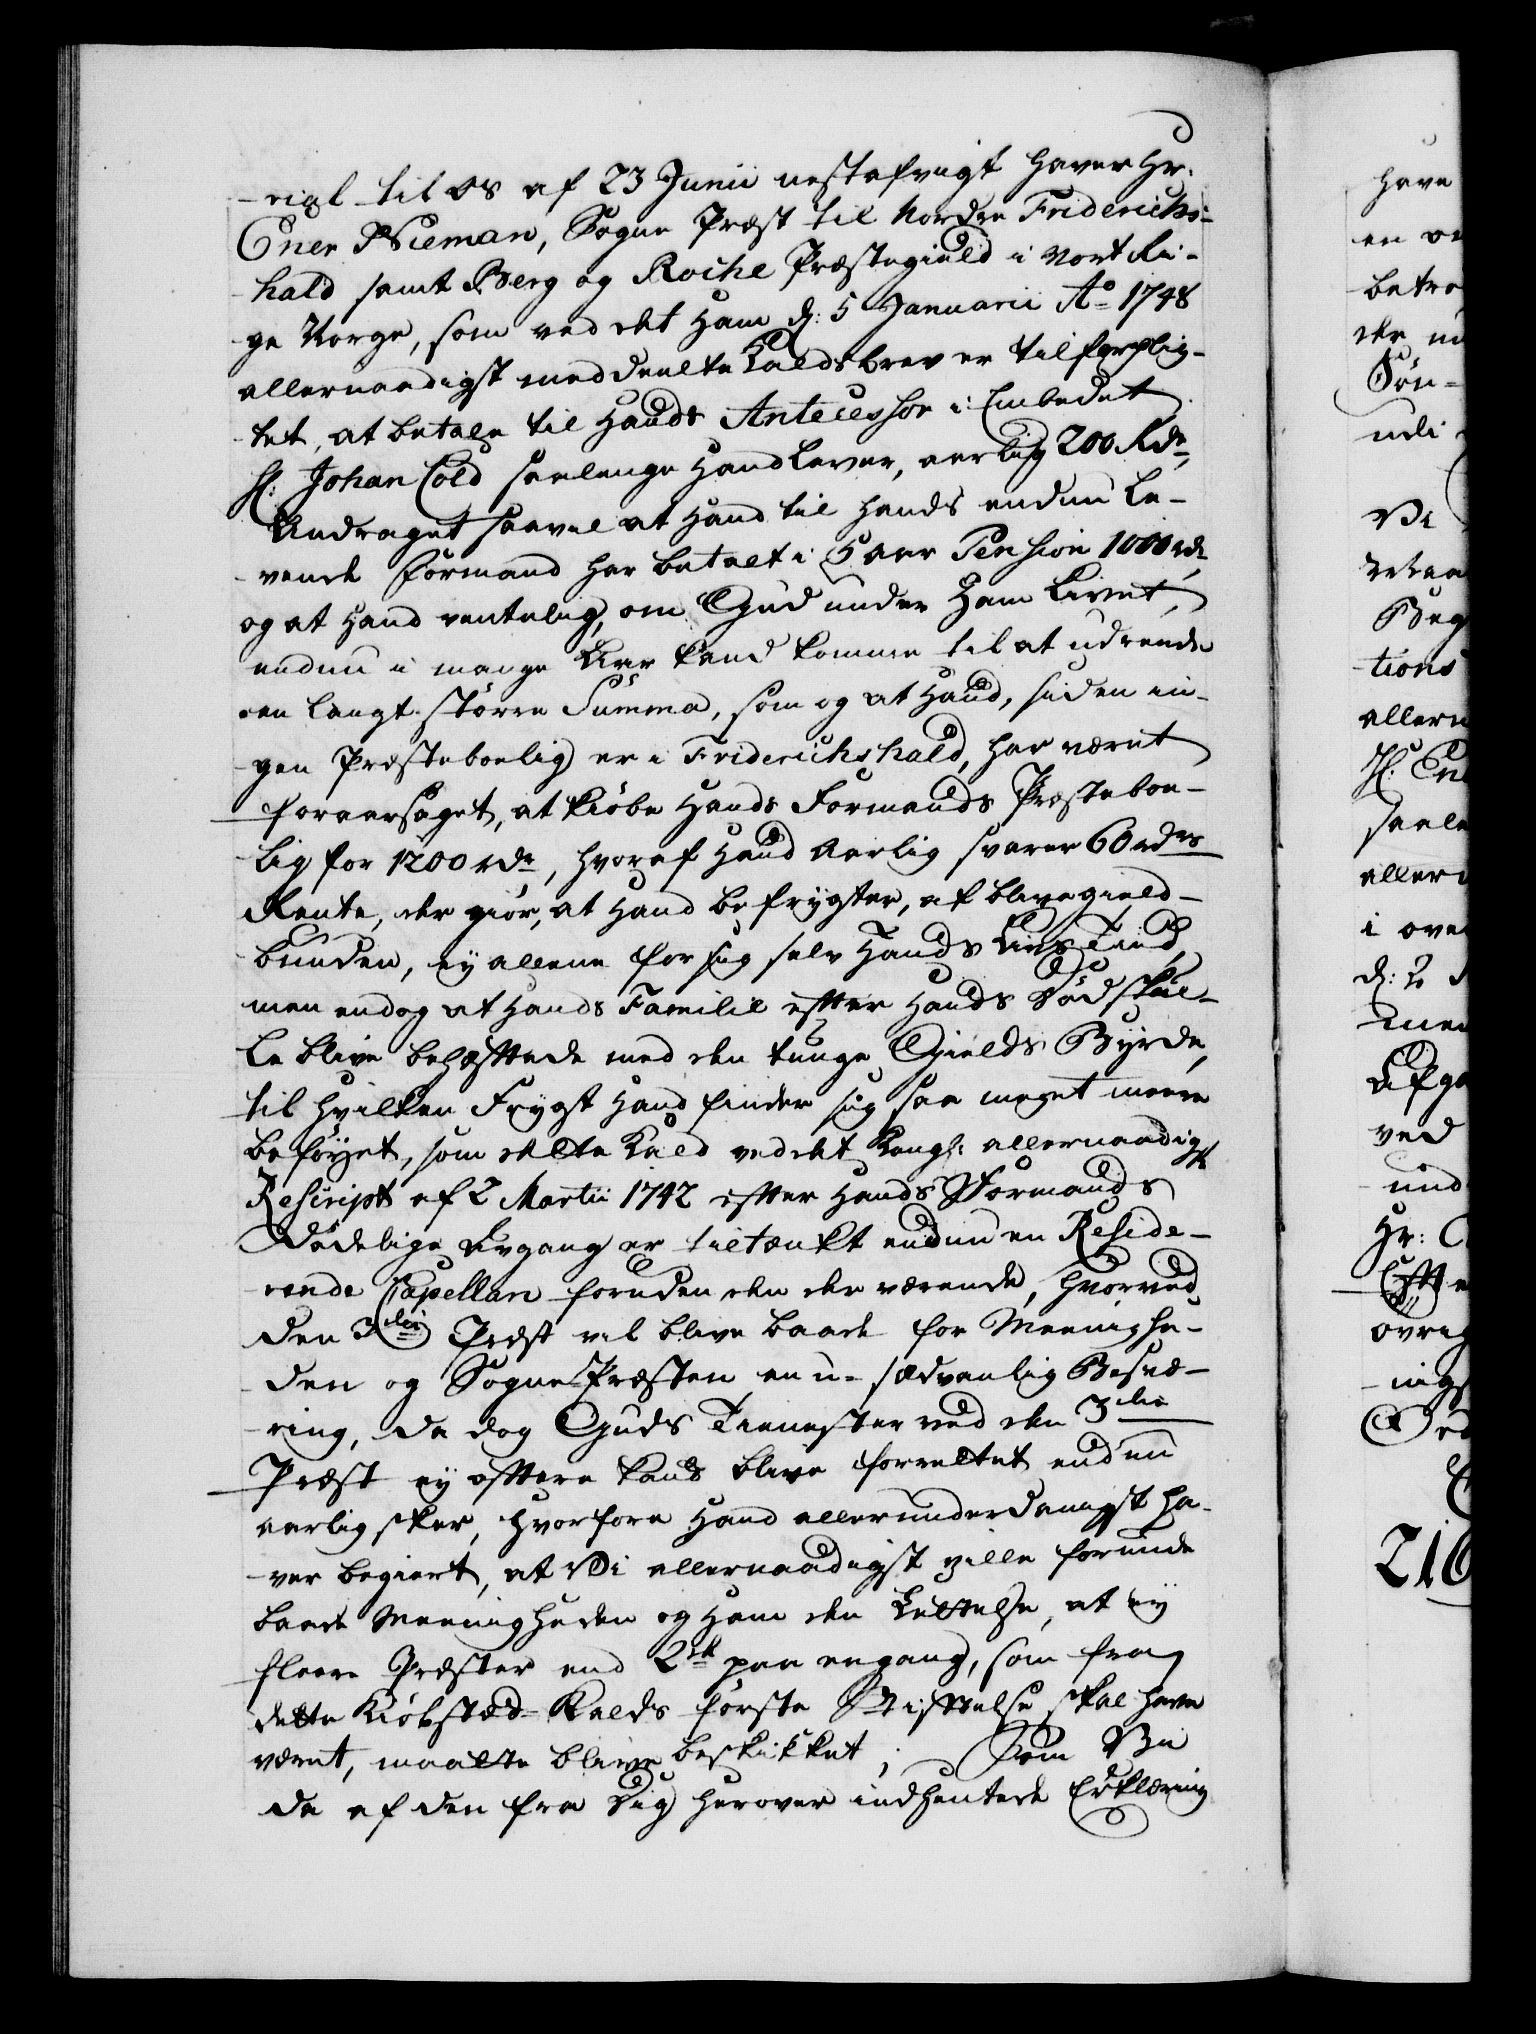 -rial til os af 23 Junii nestafvigt haver Hr:
Ener Nieman, Sogne Præst til Nordre Friderichs-
-hald samt Berg og Roche Præstegield i vort Ri-
-ge Norge, som ved det Ham d: 5 Januarii Ao 1748
allernaadigst meddeelte Kaldsbrev er tilforplig-
-tet, at betale til Hands Antecessor i Embedet
H: Johan Cold saalenge Hand lever, aarlig 200 Rdr,
Andraget saavel at Hand til hands endnu le-
-vende Formand har betalt i 5 Aar Pension 1000 rdr
og at Hand ventelig, om Gud under Ham Livet,
endnu i mange Aar kand komme til at udreede
een langt større Summa, som og at Hand, siden in-
-gen Præsteboelig er i Friderichshald, har været
foraarsaget, at kiøbe Hands Formands Præsteboe-
-lig for 1200 rdr, hvoraf Hand Aarlig svarer 60 rdrs
Rente, der giør, at Hand befrygter, at blive gield-
bunden, ej allene for sig selv Hands Livs Tiid,
men endog at Hands Familie efter Hands Død skul-
-le blive behæftede med den tunge Gields Byrde,
til hvilken Frygt Hand finder sig saa meget meere
beføyet, som dette Kald ved det Kongl: allernaadigst
Rescript af 2 Martii 1742 efter Hands Formands
Dødelige Afgang er tiltænkt endnu en Reside-
-rende Capellan foruden den der værende, hvorved
den 3die Præst vil blive baade for Meenighe-
-den og Sogne Præsten en u-sædvanlig Besvæ-
-ring, da dog Guds Tienester ved den 3die
Præst ej oftere kand blive forrettet end nu
aarlig skeer, hvorfore Hand allerunderdanigst ha-
-ver begiert, at Vi allernaadigst ville forunde
baade Meenigheden og Ham den Lettelse, at ej
fleere Præster end 2de paa engang, som fra
dette Kiøbstæd-Kalds første Stiftelse skal have
været, maatte blive beskikket; Som Vi
da af den fra Dig herover indhentede Erklæring